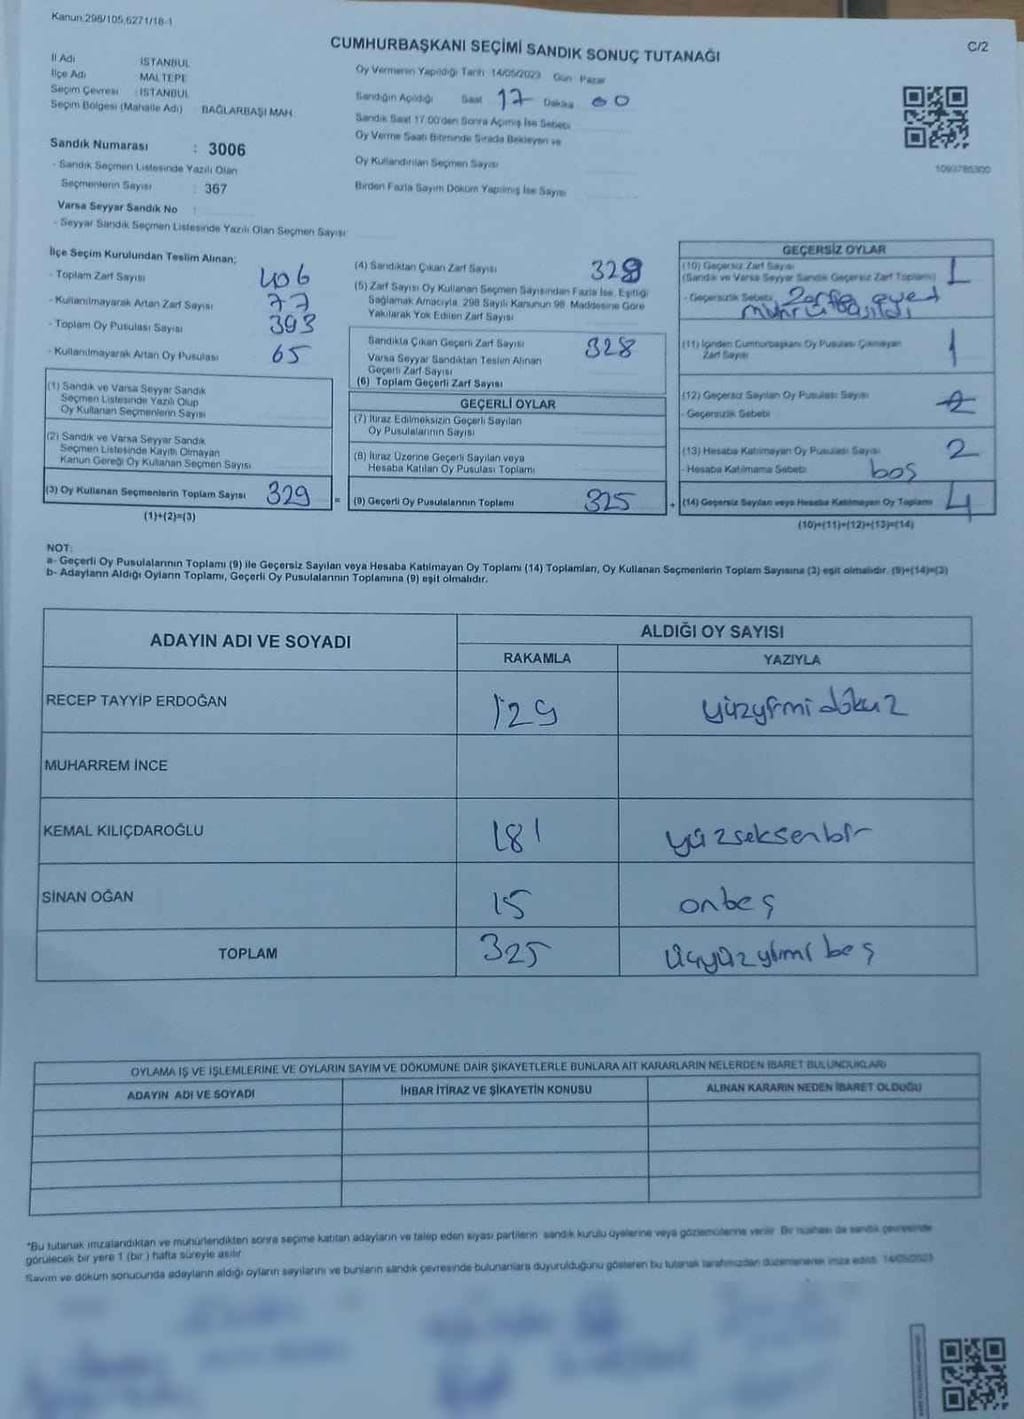 Kanun:298/105,6271/18-1
C/2
CUMHURBAŞKANI SEÇİMİ SANDIK SONUÇ TUTANAĞI
İl Adı İSTANBUL
İlçe Adı MALTEPE
Seçim Çevresi : İSTANBUL
Seçim Bölgesi (Mahalle Adı) BAĞLARBAŞI MAH.
Sandık Numarası : 3006
- Sandık Seçmen Listesinde Yazılı Olan
Seçmenlerin Sayısı : 367
Varsa Seyyar Sandık No :
- Seyyar Sandık Seçmen Listesinde Yazılı Olan Seçmen Sayısı:
Oy Vermenin Yapıldığı Tarih: 14/05/2023 Gün: Pazar
Sandığın Açıldığı Saat 17 Dakika 00
Sandık Saat 17:00'den Sonra Açılmış İse Sebebi
Oy Verme Saati Bitiminde Sırada Bekleyen ve
Oy Kullandırılan Seçmen Sayısı
Birden Fazla Sayım Döküm Yapılmış İse Sayısı
1099786300
İlçe Seçim Kurulundan Teslim Alınan;
- Toplam Zarf Sayısı 406
- Kullanılmayarak Artan Zarf Sayısı 77
- Toplam Oy Pusulası Sayısı 393
- Kullanılmayarak Artan Oy Pusulası 65
(1) Sandık ve Varsa Seyyar Sandık
Seçmen Listesinde Yazılı Olup
Oy Kullanan Seçmenlerin Sayısı
(2) Sandık ve Varsa Seyyar Sandık
Seçmen Listesinde Kayıtlı Olmayan
Kanun Gereği Oy Kullanan Seçmen Sayısı
(3) Oy Kullanan Seçmenlerin Toplam Sayısı 329 =
(1)+(2)=(3)
(4) Sandıktan Çıkan Zarf Sayısı
(5) Zarf Sayısı Oy Kullanan Seçmen Sayısından Fazla İse, Eşitliği
Sağlamak Amacıyla, 298 Sayılı Kanunun 98. Maddesine Göre
Yakılarak Yok Edilen Zarf Sayısı
Sandıkta Çıkan Geçerli Zarf Sayısı 328
Varsa Seyyar Sandıktan Teslim Alınan
Geçerli Zarf Sayısı
(6) Toplam Geçerli Zarf Sayısı
GEÇERLİ OYLAR
(7) İtiraz Edilmeksizin Geçerli Sayılan
Oy Pusulalarının Sayısı
(8) İtiraz Üzerine Geçerli Sayılan veya
Hesaba Katılan Oy Pusulası Toplamı
(9) Geçerli Oy Pusulalarının Toplamı 325 +
GEÇERSİZ OYLAR
(10) Geçersiz Zarf Sayısı 1
(Sandık ve Varsa Seyyar Sandık Geçersiz Zarf Toplamı)
- Geçersizlik Sebebi Zarfa evet
mührü basıldı
(11) İçinden Cumhurbaşkanı Oy Pusulası Çıkmayan 1
Zarf Sayısı
(12) Geçersiz Sayılan Oy Pusulası Sayısı
- Geçersizlik Sebebi
(13) Hesaba Katılmayan Oy Pusulası Sayısı 2
- Hesaba Katılmama Sebebi boş
(14) Geçersiz Sayılan veya Hesaba Katılmayan Oy Toplamı 4
(10)+(11)+(12)+(13)=(14)
NOT:
a- Geçerli Oy Pusulalarının Toplamı (9) ile Geçersiz Sayılan veya Hesaba Katılmayan Oy Toplamı (14) Toplamları, Oy Kullanan Seçmenlerin Toplam Sayısına (3) eşit olmalıdır. (9)+(14)=(3)
b- Adayların Aldığı Oyların Toplamı, Geçerli Oy Pusulalarının Toplamına (9) eşit olmalıdır.
ADAYIN ADI VE SOYADI ALDIĞI OY SAYISI
RAKAMLA YAZIYLA
RECEP TAYYİP ERDOĞAN 129 yüzyirmi dokuz
MUHARREM İNCE
KEMAL KILIÇDAROĞLU 181 yüzseksenbir
SİNAN OĞAN 15 onbeş
TOPLAM 325 üçyüzyirmi beş
OYLAMA İŞ VE İŞLEMLERİNE VE OYLARIN SAYIM VE DÖKÜMÜNE DAİR ŞİKAYETLERLE BUNLARA AİT KARARLARIN NELERDEN İBARET BULUNDUKLARI
ADAYIN ADI VE SOYADI İHBAR İTİRAZ VE ŞİKAYETİN KONUSU ALINAN KARARIN NEDEN İBARET OLDUĞU
*Bu tutanak imzalandıktan ve mühürlendikten sonra seçime katılan adayların ve talep eden siyasi partilerin sandık kurulu üyelerine veya gözlemcilerine verilir. Bir nüshası da sandık çevresinde
görülecek bir yere 1 (bir) hafta süreyle asılır.
Sayım ve döküm sonucunda adayların aldığı oyların sayılarını ve bunların sandık çevresinde bulunanlara duyurulduğunu gösteren bu tutanak tarafımızdan düzenlenerek imza edildi. 14/05/2023